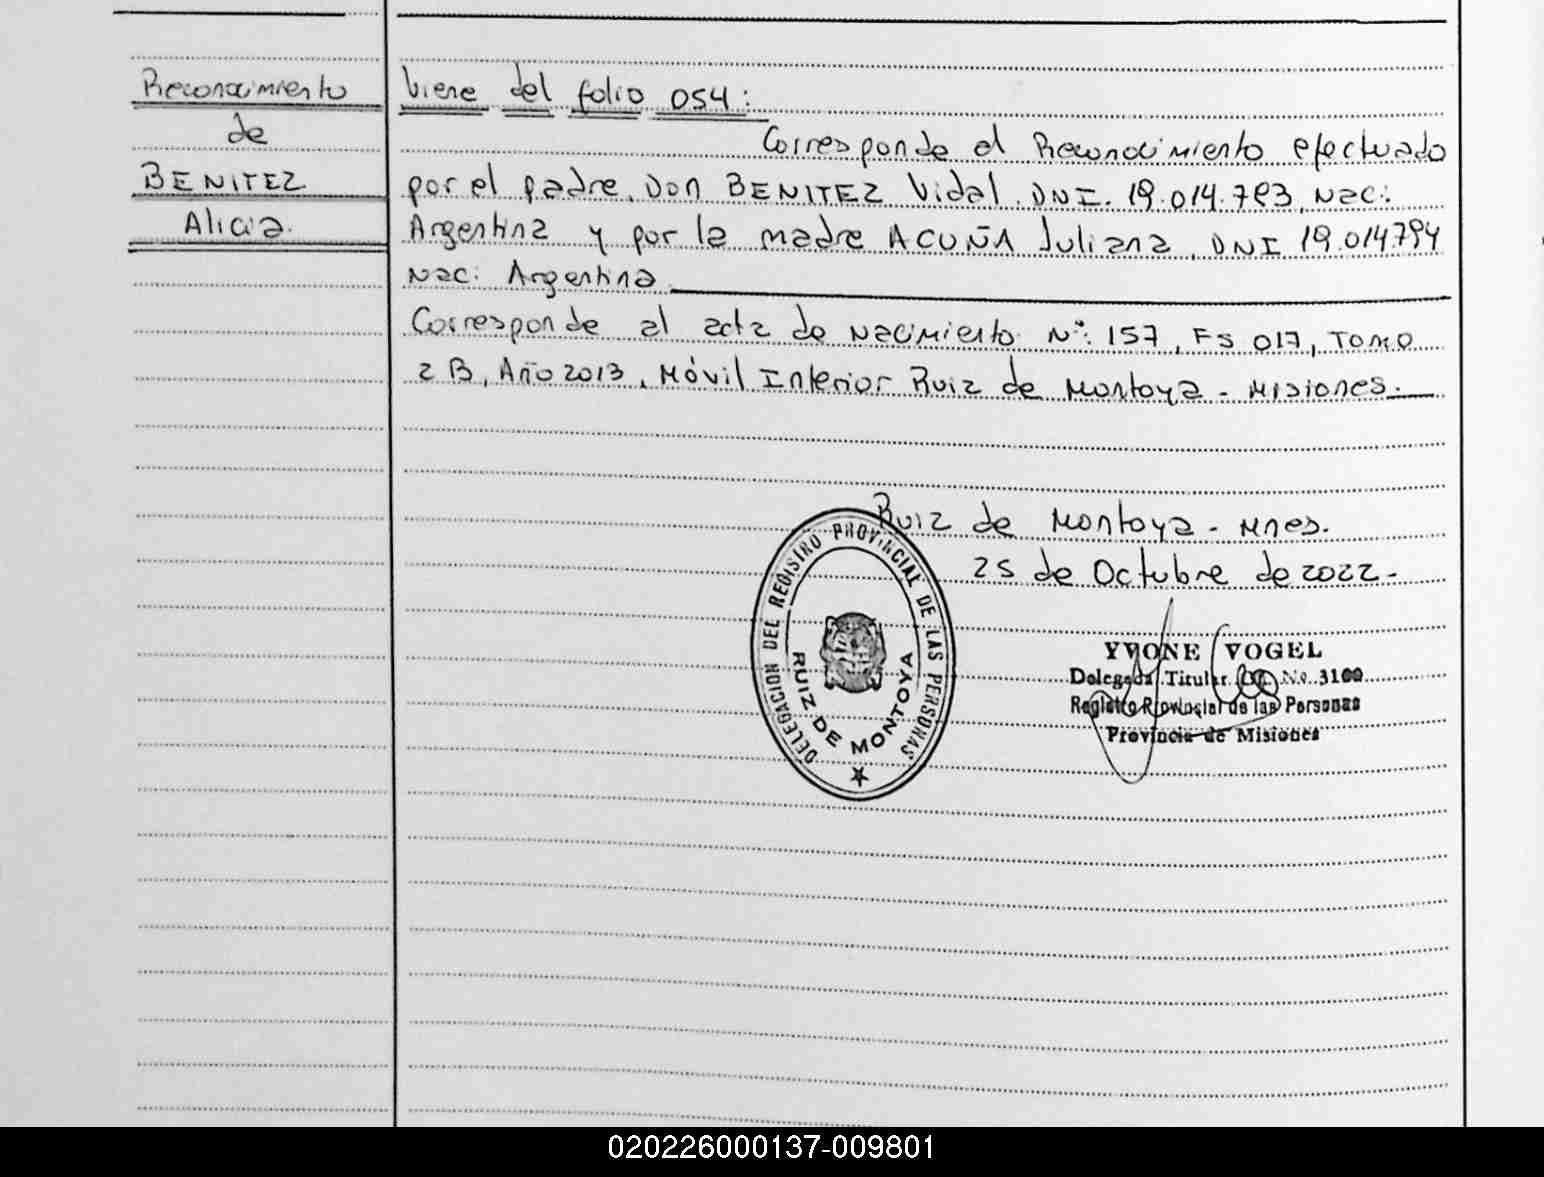 Reconocimiento
de
BENITEZ
Alicia.
Viene del folio 054:
Corresponde al Reconocimiento efectuado
por el padre, Don BENITEZ Vidal. DNI. 19.014.793, Nac:
Argentina y por la madre ACUÑA Juliana, DNI 19.014794
Nac: Argentina
Corresponde al acta de Nacimiento Nº: 157, FS 017, TOMO
2 B, Año 2013, Móvil Interior Ruiz de Montoya - Misiones.
Ruiz de Montoya - Mnes.
25 de Octubre de 2022-
DELEGACION DEL REGISTRO PROVINCIAL DE LAS PERSONAS
RUIZ DE MONTOYA
YVONE VOGEL
Delegada Titular No. 3100
Registro Provincial de las Personas
Provincia de Misiones
020226000137-009801